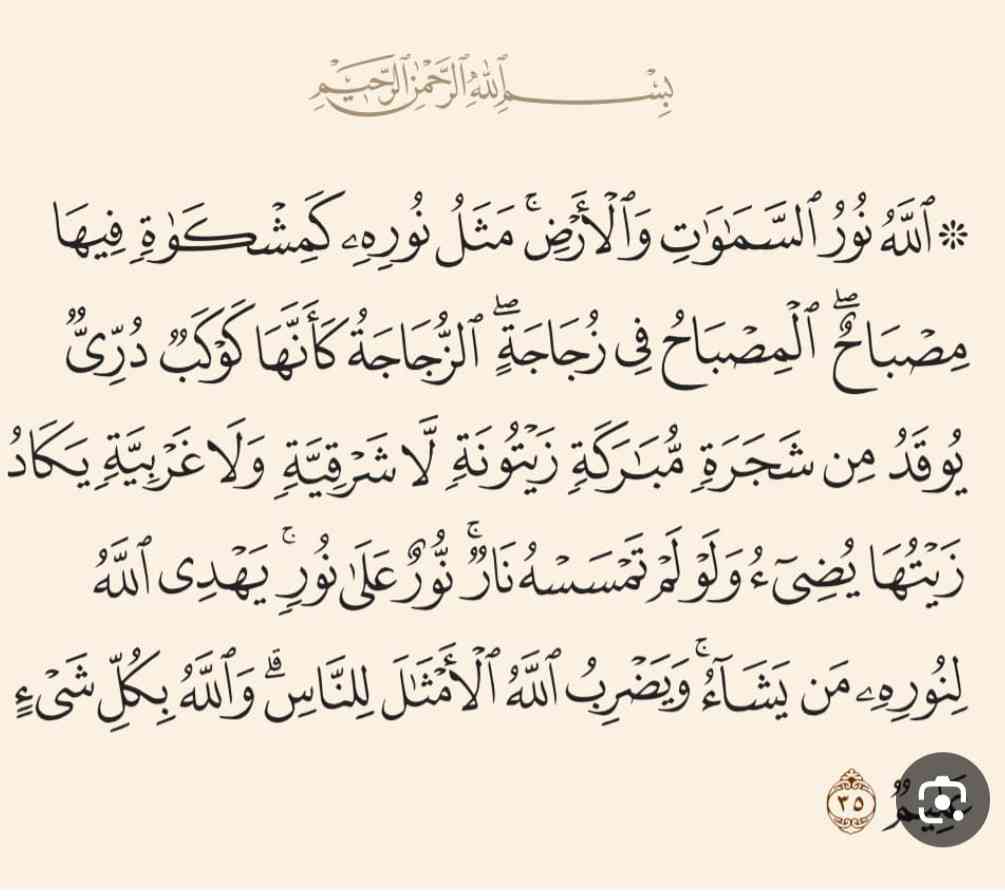 بِسْمِ ٱللَّهِ ٱلرَّحْمَٰنِ ٱلرَّحِيمِ
۞ ٱللَّهُ نُورُ ٱلسَّمَٰوَٰتِ وَٱلْأَرْضِ ۚ مَثَلُ نُورِهِۦ كَمِشْكَوٰةٍ فِيهَا
مِصْبَاحٌ ۖ ٱلْمِصْبَاحُ فِى زُجَاجَةٍ ۖ ٱلزُّجَاجَةُ كَأَنَّهَا كَوْكَبٌ دُرِّىٌّ
يُوقَدُ مِن شَجَرَةٍ مُّبَٰرَكَةٍ زَيْتُونَةٍ لَّا شَرْقِيَّةٍ وَلَا غَرْبِيَّةٍ يَكَادُ
زَيْتُهَا يُضِىٓءُ وَلَوْ لَمْ تَمْسَسْهُ نَارٌ ۚ نُّورٌ عَلَىٰ نُورٍ ۚ يَهْدِى ٱللَّهُ
لِنُورِهِۦ مَن يَشَآءُ ۚ وَيَضْرِبُ ٱللَّهُ ٱلْأَمْثَٰلَ لِلنَّاسِ ۗ وَٱللَّهُ بِكُلِّ شَىْءٍ
عَلِيمٌ ٣٥